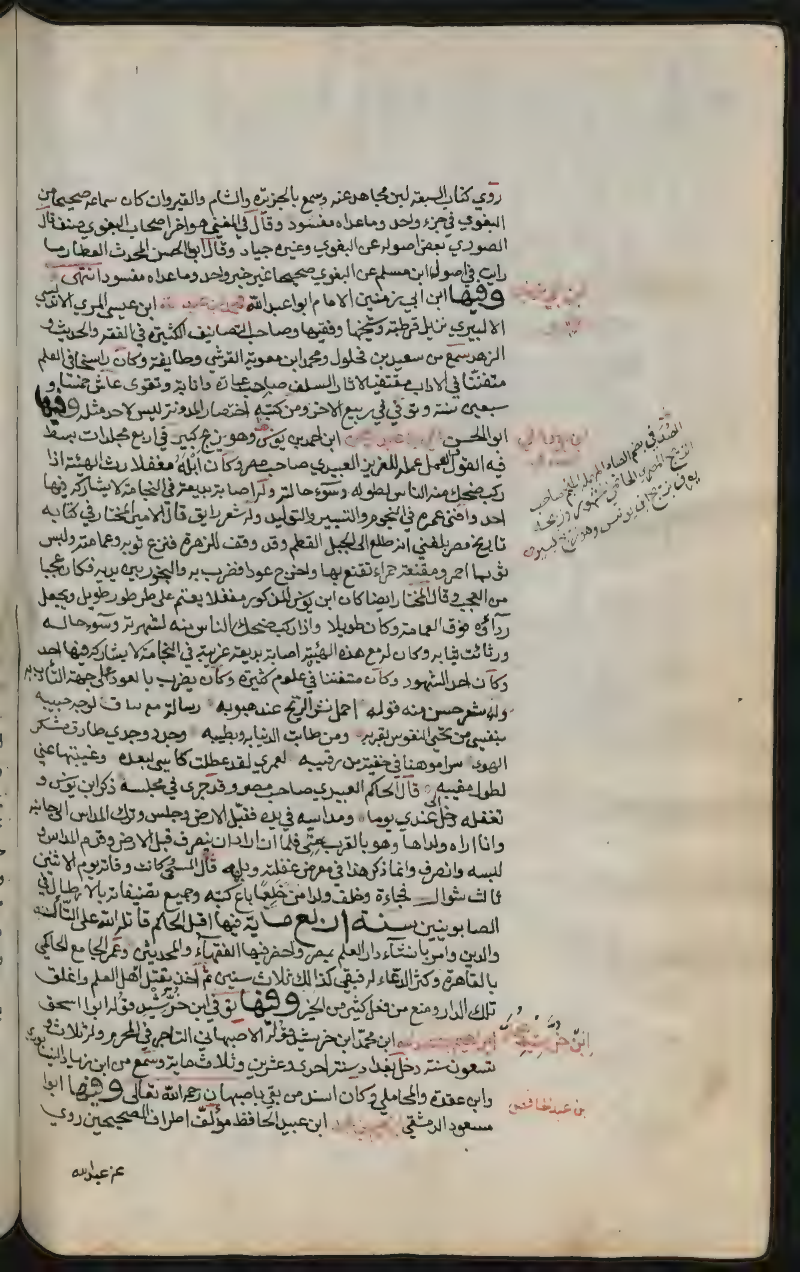 روي كتاب السبعة لابن مجاهد عنه وسمع بالجزيرة والشام والقيروان كان سماعه صحيحا من
البغوي في جزء واحد وما عداه مفسود وقال في المغني هو اخر اصحاب البغوي ضعف قال
الصوري بعض اصوله عن البغوي وغيره جياد وقال ابو الحسن المحدث العطار ما
رايت في اصول ابن مسلم عن البغوي صحيحا غير خبر واحد وما عداه مفسود انتهى
وفيها ابن ابي زمنين الامام ابو عبد الله محمد بن عبد الله ابن عيسى المري الاندلسي
الالبيري نزيل قرطبة وشيخها وفقيها وصاحب التصانيف الكثيرة في الفقه والحديث و
الزهد سمع من سعيد بن فحلون ومحمد ابن معوية القرشي وطايفة وكان راسخا في العلم
متفننا في الاداب مقتفيا لاثار السلف صاحب عبادة وانابة وتقوى عاش خمسا و
سبعين سنة وتوفي في ربيع الاخر ومن كتبه اختصار المدونة ليس لاحد مثله وفيها
ابو الحسن علي بن عبد الرحمن ابن احمد بن يونس وهو زيج كبير في اربع مجلدات بسط
فيه القول والعمل عمله للعزيز العبيدي صاحب مصر وكان ابله مغفلا رث الهيئة اذا
ركب ضحك منه الناس لطوله وسوء حالته وله اصابة بديعة في النجامة لا يشاركه فيها
احد وافنى عمره في النجوم والتسيير والتوليد وله شعر رايق قال الامير المختار في كتابه
تاريخ مصر بلغني انه طلع الى الجبل المقطم وقد وقف للزهرة فنزع ثوبه وعمامته ولبس
ثوبا احمر ومقنعة حمراء تقنع بها واخرج عودا فضرب به والبخور بين يديه فكان عجبا
من العجب وقال المختار ايضا كان ابن يونس المذكور مغفلا يعتم على طرطور طويل ويجعل
رداؤه فوق العمامة وكان طويلا واذا ركب ضحك الناس منه لشهرته وسوء حاله
ورثاثت ثيابه وكان له مع هذه الهيئة اصابة بديعة غريبة في النجامة لا يشاركه فيها احد
وكان احد الشهود وكان متفننا في علوم كثيرة وكان يضرب بالعود على جهة التادب
وله شعر حسن منه قوله احمل نشر الريح عند هبوبه رسالة مشتاق لوجه حبيبه
بنفسي من تحيى النفوس بقربه ومن طابت الدنيا به وبطيبه وجدد وجدي طارق منه في
الهوى سرا موهنا في خفية من رقيبه لعمري لقد عطلت كاسي بعده وغيبتها عني
لطول مغيبه قال الحاكم العبيدي صاحب مصر وقد جرى في مجلسه ذكر ابن يونس و
تغفله دخل الى عندي يوما ومداسه في يده فقبل الارض وجلس وترك المداس الى جانبه
وانا اراه واراها وهو بالقرب مني فلما اراد ان ينصرف قبل الارض وقدم المداس و
لبسه وانصرف وانما ذكر هذا في معرض غفلته وبلهه قال المسبحي كانت وفاته يوم الاثنين
ثالث شوال فجاءة وخلف ولدا متخلفا باع كتبه وجميع تصنيفاته بالارطال في
الصابونيين سنة اربع ماية فيها اقبل الحاكم قاتله الله على التأله
والدين وامر بانشاء دار العلم بمصر واحضر فيها الفقهاء والمحدثين وعمر الجامع الحاكمي
بالقاهرة وكثر الدعاء له فبقي كذالك ثلاث سنين ثم اخذ يقتل اهل العلم واغلق
تلك الدار ومنع من فعل كثير من الخير وفيها توفي ابن خرشيد قوله ابو اسحق
ابراهيم بن عبد الله ابن محمد ابن خرشيد قوله الاصبهاني التاجر في المحرم وله ثلاث و
تسعون سنة دخل بغداد سنة احدى وعشرين وثلاث ماية وسمع من ابن زياد النيسابوري
وابن عقدة والمحاملي وكان اسند من بقي باصبهان رحمه الله تعالى وفيها ابو
مسعود الدمشقي ابراهيم بن محمد ابن عبيد الحافظ مؤلف اطراف الصحيحين روي
عن عبد الله
ابن ابي زمنين
ابن خرشيد
بن عبيد الحافظ